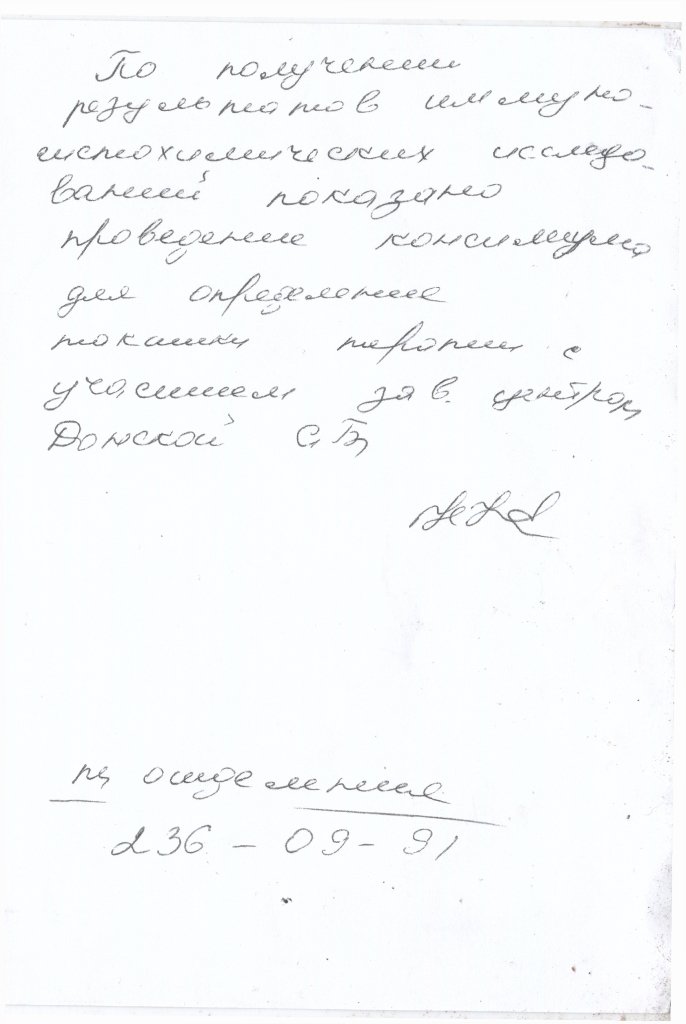 По получении
результатов иммуно-
гистохимических исследо-
ваний показано
проведение консилиума
для определения
тактики терапии с
участием зав. центром
Донской С.Б.
отделения
236-09-91